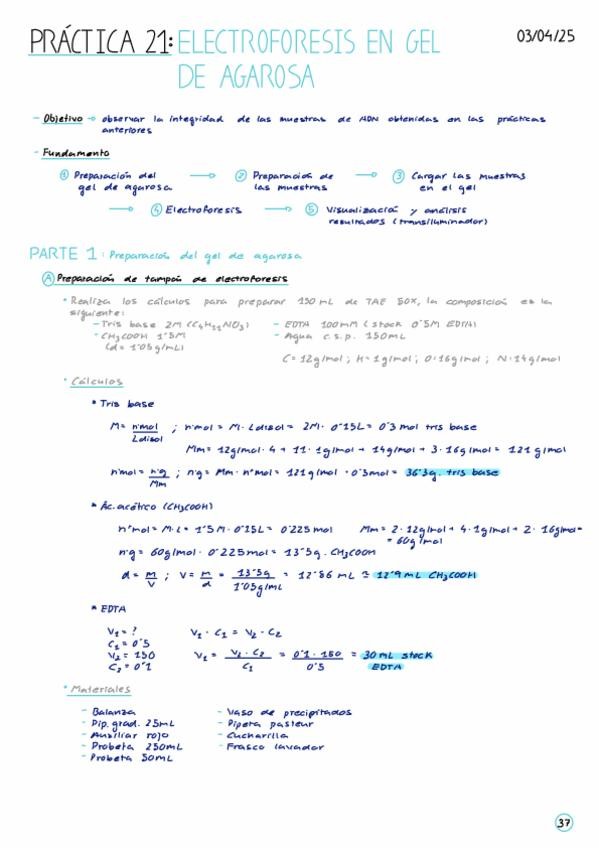 PRÁCTICA 21: ELECTROFORESIS EN GEL 03/04/25
DE AGAROSA
- Objetivo → observar la integridad de las muestras de ADN obtenidas en las prácticas
anteriores
- Fundamento
① Preparación del → ② Preparación de → ③ Cargar las muestras
gel de agarosa las muestras en el gel
→ ④ Electroforesis → ⑤ Visualización y análisis
resultados (transiluminador)
PARTE 1: Preparación del gel de agarosa
Ⓐ Preparación de tampón de electroforesis
• Realiza los cálculos para preparar 150 mL de TAE 50X, la composición es la
siguiente:
- Tris base 2M (C4H11NO3) - EDTA 100mM (stock 0'5M EDTA)
- CH3COOH 1'5M - Agua c.s.p. 150mL
(d = 1'05g/mL)
C = 12g/mol ; H = 1g/mol ; O = 16g/mol ; N = 14g/mol
• Cálculos
* Tris base
M = nºmol / Ldisol ; nºmol = M · Ldisol = 2M · 0'15L = 0'3 mol tris base
Mm = 12g/mol · 4 + 11 · 1g/mol + 14g/mol + 3 · 16g/mol = 121 g/mol
nºmol = nºg / Mm ; nºg = Mm · nºmol = 121g/mol · 0'3mol = 36'3g. tris base
* Ác. acético (CH3COOH)
nºmol = M · L = 1'5M · 0'15L = 0'225 mol Mm = 2 · 12g/mol + 4 · 1g/mol + 2 · 16g/mol =
= 60g/mol
nºg = 60g/mol · 0'225mol = 13'5g. CH3COOH
d = m / V ; V = m / d = 13'5g / 1'05g/mL = 12'86 mL ≅ 12'9 mL CH3COOH
* EDTA
V1 = ? V1 · C1 = V2 · C2
C1 = 0'5
V2 = 150 V1 = V2 · C2 / C1 = 0'1 · 150 / 0'5 = 30 mL stock
C2 = 0'1 EDTA
• Materiales
- Balanza - Vaso de precipitados
- Pip. grad. 25mL - Pipeta pasteur
- Auxiliar rojo - Cucharilla
- Probeta 250mL - Frasco lavador
- Probeta 50mL
37